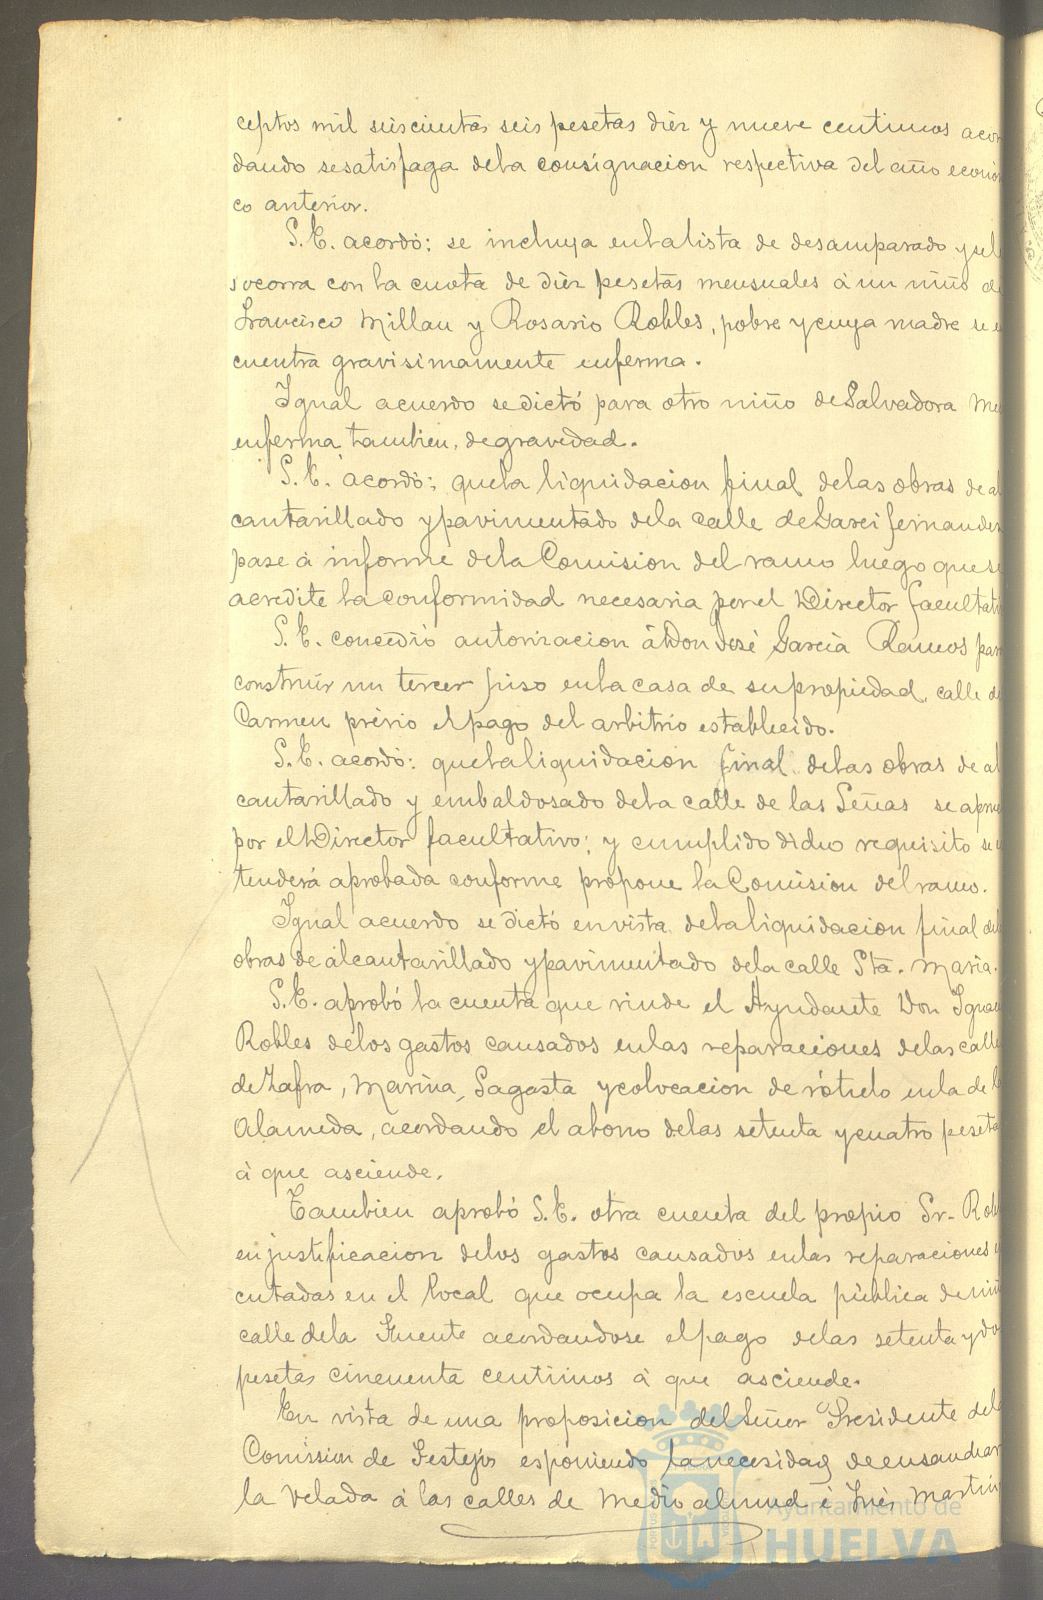 ceptos mil seiscientas seis pesetas diez y nueve centimos acor
dando se satisfaga de la consignacion respectiva del año económi
co anterior.
S. E. acordó: se incluya en la lista de desamparado y se le
socorra con la cuota de diez pesetas mensuales á un niño de
Francisco Millan y Rosario Robles, pobre y cuya madre se en
cuentra gravisimamente enferma.
Igual acuerdo se dictó para otro niño de Salvadora
enferma tambien, de gravedad.
S. E. acordó: que la liquidacion final de las obras de al
cantarillado y pavimentado de la calle de Garci fernandez
pase á informe de la Comision del ramo luego que se
acredite la conformidad necesaria por el Director facultati
S. E. concedió autorizacion á Don José Garcia Ramos para
construir un tercer piso en la casa de su propiedad, calle del
Carmen prévio el pago del arbitrio establecido.
S. E. acordó: que la liquidacion final de las obras de al
cantarillado y embaldosado de la calle de las Señas se aprue
por el Director facultativo; y cumplido dicho requisito se en
tenderá aprobada conforme propone la Comision del ramo.
Igual acuerdo se dictó en vista de la liquidacion final de las
obras de alcantarillado y pavimentado de la calle Sta. Maria.
S. E. aprobó la cuenta que rinde el Ayudante Don Ignac
Robles de los gastos causados en las reparaciones de las calle
de Zafra, Marina, Sagasta y colocacion de rótulo en la de la
Alameda, acordando el abono de las setenta y cuatro peseta
á que asciende.
Tambien aprobó S. E. otra cuenta del propio Sr. Robl
en justificacion de los gastos causados en las reparaciones ej
cutadas en el local que ocupa la escuela pública de niñ
calle de la Fuente acordandose el pago de las setenta y dos
pesetas cincuenta centimos á que asciende.
En vista de una proposicion del Señor Presidente de la
Comision de Festejos esponiendo la necesidad de ensanchar
la Velada á las calles de Medio almud é Inés Martin
Ayuntamiento de
HUELVA